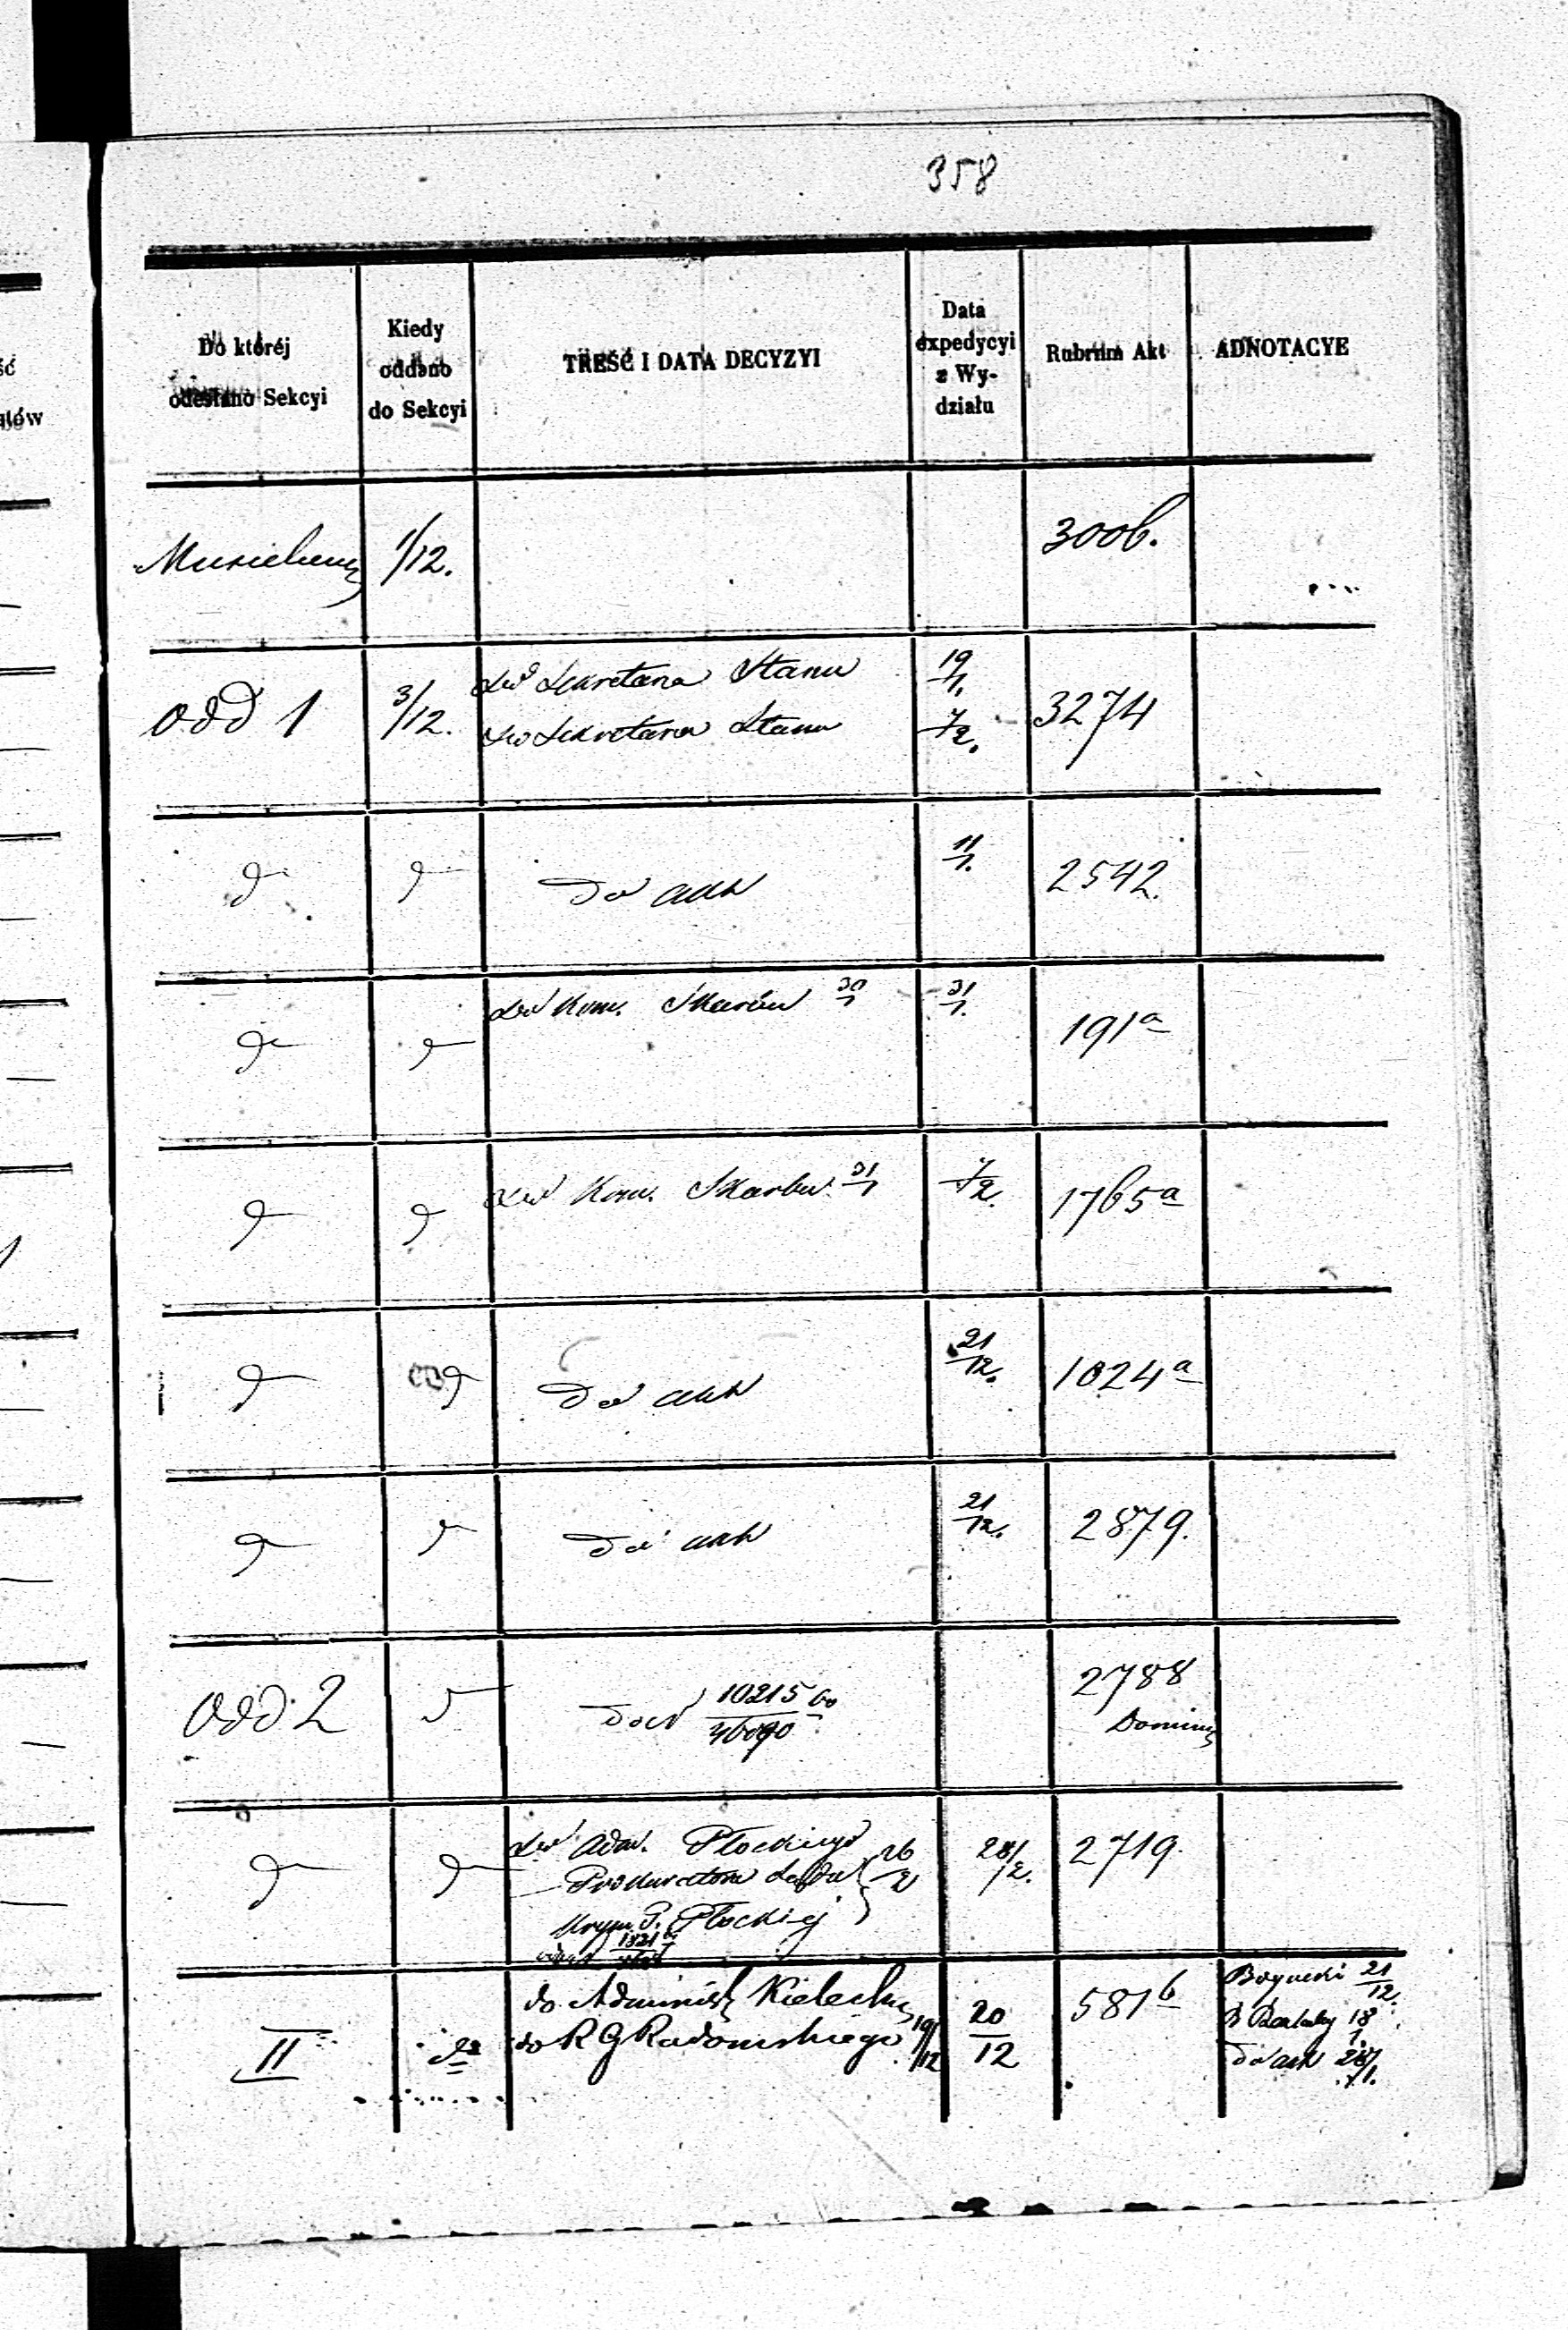 358
Do któréj
odesłano Sekcyi
Kiedy
oddano
do Sekcyi
TREŚĆ I DATA DECYZYI
Data
expedycyi
z Wy-
działu
Rubrum Akt
ADNOTACYE
1/12.
300b.
Odd 1
3/12.
do Sekretarza Stanu
19/1.
do Sekretarza Stanu
7/2.
3274
do akt
11/1.
2542.
do Kom. Skarbu 30/1
31/1.
191a
do Kom. Skarbu 31/1
7/2.
1765a
do akt
21/12.
1024a
do akt
21/12.
2879.
Odd. 2
10215
2788
do Adm. Płockiego
Prokuratora Sądu
Krym. P. Płockiej
28/2.
2719.
II
do
do Administ Kieleck
do R G Radomskiego 19/12
20/12
581b
21/12.
18/1.
do akt
ść
ntów